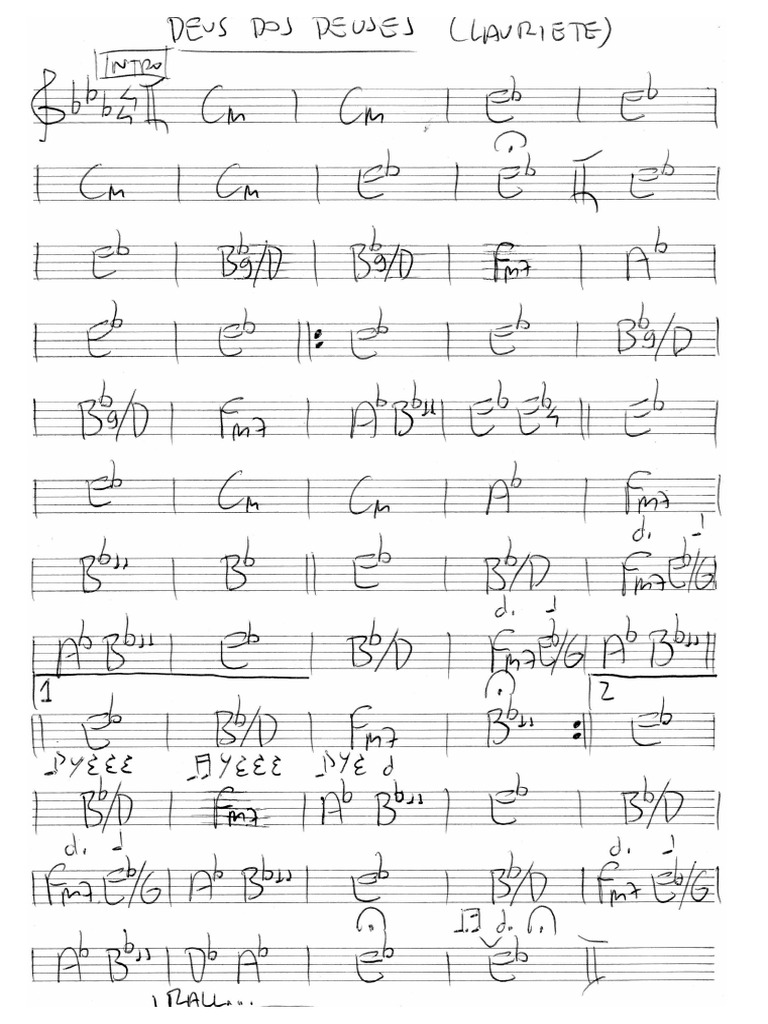 DEUS DOS DEUSES (LAURIETE)
INTRO
Cm | Cm | E♭ | E♭
| Cm | Cm | E♭ | E♭ || E♭ |
| E♭ | B♭9/D | B♭9/D | Fm7 | A♭ |
| E♭ | E♭ ||: E♭ | E♭ | B♭9/D |
| B♭9/D | Fm7 | A♭ B♭11 | E♭ E♭4 || E♭ |
| E♭ | Cm | Cm | A♭ | Fm7 |
| B♭11 | B♭ || E♭ | B♭/D | Fm7 E♭/G |
| A♭ B♭11 | E♭ | B♭/D | Fm7 E♭/G | A♭ B♭11 ||
1 2
|| E♭ | B♭/D | Fm7 | B♭11 :|| E♭ |
| B♭/D | Fm7 | A♭ B♭11 | E♭ | B♭/D |
| Fm7 E♭/G | A♭ B♭11 | E♭ | B♭/D | Fm7 E♭/G |
| A♭ B♭11 | D♭ A♭ | E♭ | E♭ ||
RALL...